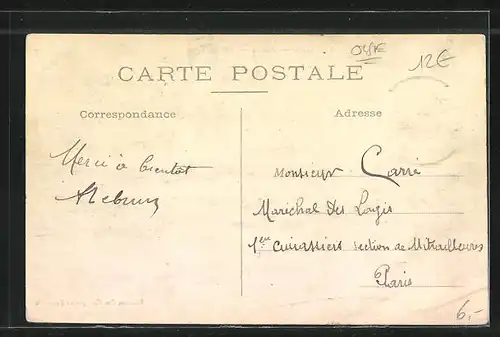 OISE
12€
CARTE POSTALE
Correspondance
Adresse
Merci à bientot
Monsieur Carré
Marichal des Logis
1er Cuirassiers section de Mitrailleuses
Paris
6,-